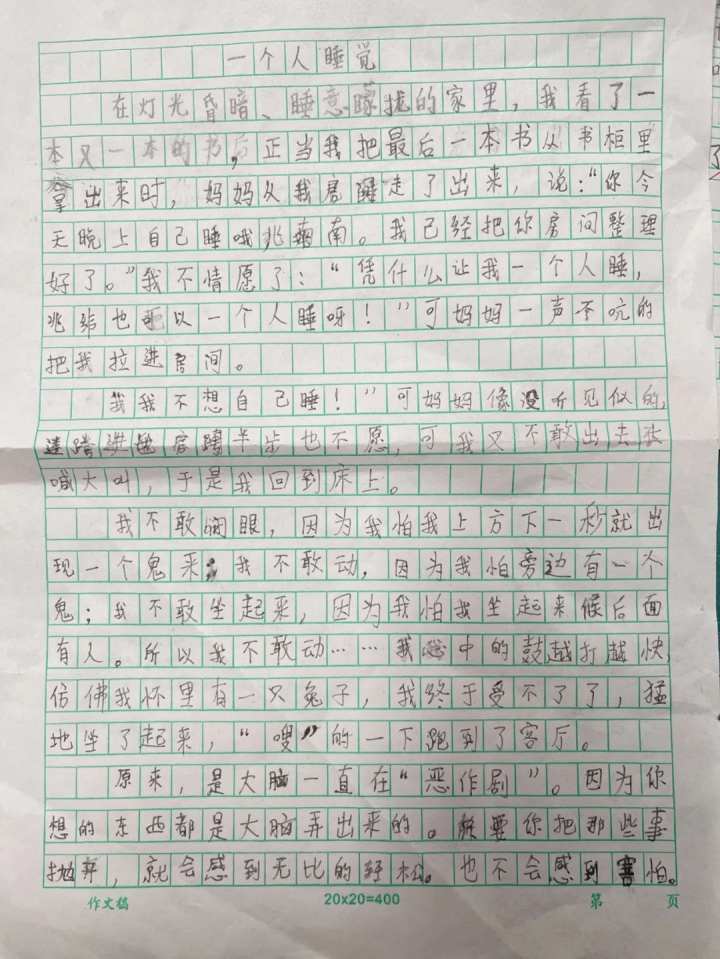 一个人睡觉
在灯光昏暗、睡意朦拢的家里，我看了一
本又一本的书后，正当我把最后一本书从书柜里
拿出来时，妈妈久我房走了出来，说：“你今
天晚上自己睡哦，兆南。我已经把你房间整理
好了。”我不情愿了：“凭什么让我一个人睡，
兆纬也可以一个人睡呀！”可妈妈一声不吭的
把我拉进房间。
我不想自己睡！”可妈妈像没听见似的，
进房半步也不愿，可我又不敢出去大
喊大叫，于是我回到床上。
我不敢闭眼，因为我怕我上方下一秒就出
现一个鬼来；我不敢动，因为我怕旁边有一个
鬼；我不敢坐起来，因为我怕我坐起来候后面
有人。所以我不敢动……我心中的鼓越打越快，
仿佛我怀里有一只兔子，我终于受不了了，猛
地坐了起来，“嗖”的一下跑到了客厅。
原来，是大脑一直在“恶作剧”。因为你
想的东西都是大脑弄出来的。要你把那些事
抛弃，就会感到无比的轻松。也不会感到害怕。
作文稿 20×20=400 第 页